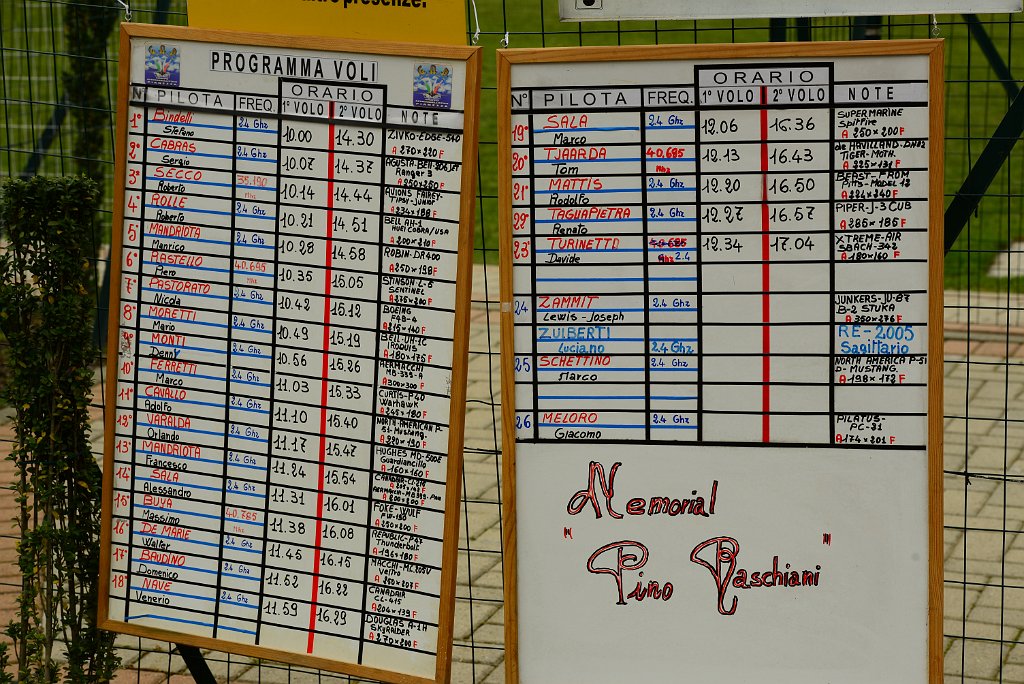 tre presenze.
PROGRAMMA VOLI
ORARIO
N° PILOTA FREQ. 1° VOLO 2° VOLO NOTE
1° Bindelli Stefano 2.4 Ghz 10.00 14.30 ZIVKO-EDGE-540 A 270×220 F
2° CABRAS Sergio 2.4 Ghz 10.07 14.37 AGUSTA-BELL-206 JET Ranger 3 A 250×250 F
3° SECCO Roberto 35.190 Mhz 10.14 14.44 AVIONS FAIREY-TIPSY-JUNIOR A 234×188 F
4° ROLLE Roberto 2.4 Ghz 10.21 14.51 BELL AH-1 HUEI COBRA/USA A 200×210 F
5° MANDRIOTA Manrico 2.4 Ghz 10.28 14.58 ROBIN-DR400 A 250×198 F
6° RASTELLO Piero 40.695 Mhz 10.35 15.05 STINSON L-5 SENTINEL A 275×200 F
7° PASTORATO Nicola 2.4 Ghz 10.42 15.12 BOEING F4B-4 A 215×140 F
8° MORETTI Mario 2.4 Ghz 10.49 15.19 BELL-UH-1C IROQUIS A 180×175 F
9° MONTI Denny 2.4 Ghz 10.56 15.26 AERMACCHI MB-339-A A 300×300 F
10° FERRETTI Marco 2.4 Ghz 11.03 15.33 CURTIS-P40 Warhawk A 245×180 F
11° CAVALLO Adolfo 2.4 Ghz 11.10 15.40 NORTH AMERICAN P-51-Mustang A 220×190 F
12° VARALDA Orlando 2.4 Ghz 11.17 15.47 HUGHES MD-500E Guardiancillo A 160×160 F
13° MANDRIOTA Francesco 2.4 Ghz 11.24 15.54
14° SALA Alessandro 2.4 Ghz 11.31 16.01 FOKE-WULF FW-190 A 250×200 F
15° BUYA Massimo 40.765 Mhz 11.38 16.08 REPUBLIC-P47 Thunderbolt A 196×180 F
DE MARIE Walter 2.4 Ghz 11.45 16.15 MACCHI-MC.205V Veltro A 250×203 F
17° BAUDINO Domenico 2.4 Ghz 11.52 16.22 CANADAIR CL-415 A 204×139 F
18° NAVE Venerio 2.4 Ghz 11.59 16.29 DOUGLAS A-1H SKYRAIDER A 270×200 F
ORARIO
N° PILOTA FREQ. 1° VOLO 2° VOLO NOTE
19° SALA Marco 2.4 Ghz 12.06 16.36 SUPERMARINE Spitfire A 250×200 F
20° TJAARDA Tom 40.685 Mhz 12.13 16.43 de HAVILLAND-DH82 TIGER-MOTH. A 225×131 F
21° MATTIS Rodolfo 2.4 Ghz 12.20 16.50 BEAST-FROM Pitts-MODEL 12 A 224×240 F
22° TAGLIAPIETRA Renato 2.4 Ghz 12.27 16.57 PIPER-J-3 CUB A 285×185 F
23° TURINETTO Davide 40.685 Ghz 2.4 12.34 17.04 XTREME-AIR SBACH-342 A 180×160 F
24 ZAMMIT Lewis-Joseph 2.4 Ghz JUNKERS-JU-87 B-2 STUKA A 350×276 F
ZULBERTI Luciano 2.4 Ghz RE-2005 Sagittario
25 SCHETTINO Marco 2.4 Ghz NORTH AMERICA P-51 D-MUSTANG. A 198×172 F
26 MELORO Giacomo 2.4 Ghz PILATUS-PC-21 A 174×201 F
Memorial
"Pino Paschiani"